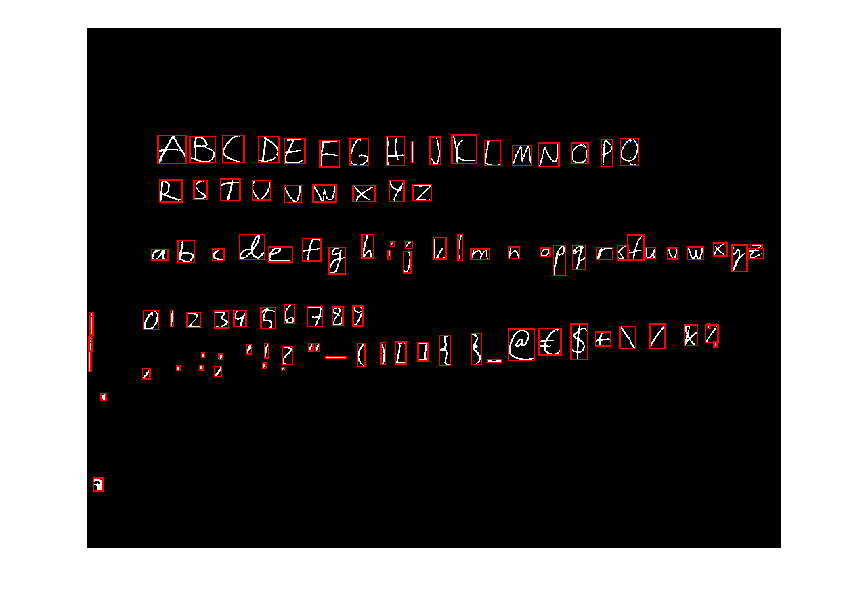 A B C D E F G H I J K L M N O P Q
R S T U V W X Y Z
a b c d e f g h i j k l m n o p q r s t u v w x y z
0 1 2 3 4 5 6 7 8 9
, . : ; ' ! ? " - ( ) [ ] { } _ @ € $ + \ / &